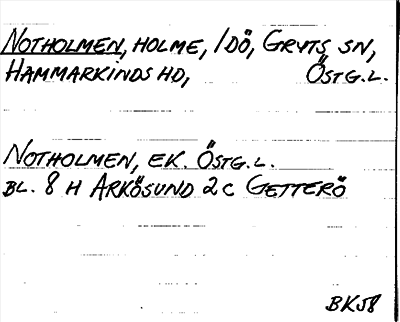 NOTHOLMEN, HOLME, IDÖ, GRYTS SN,
HAMMARKINDS HD, ÖSTG.L.
NOTHOLMEN, EK. ÖSTG.L.
BL. 8 H ARKÖSUND 2C GETTERÖ
BKJ8